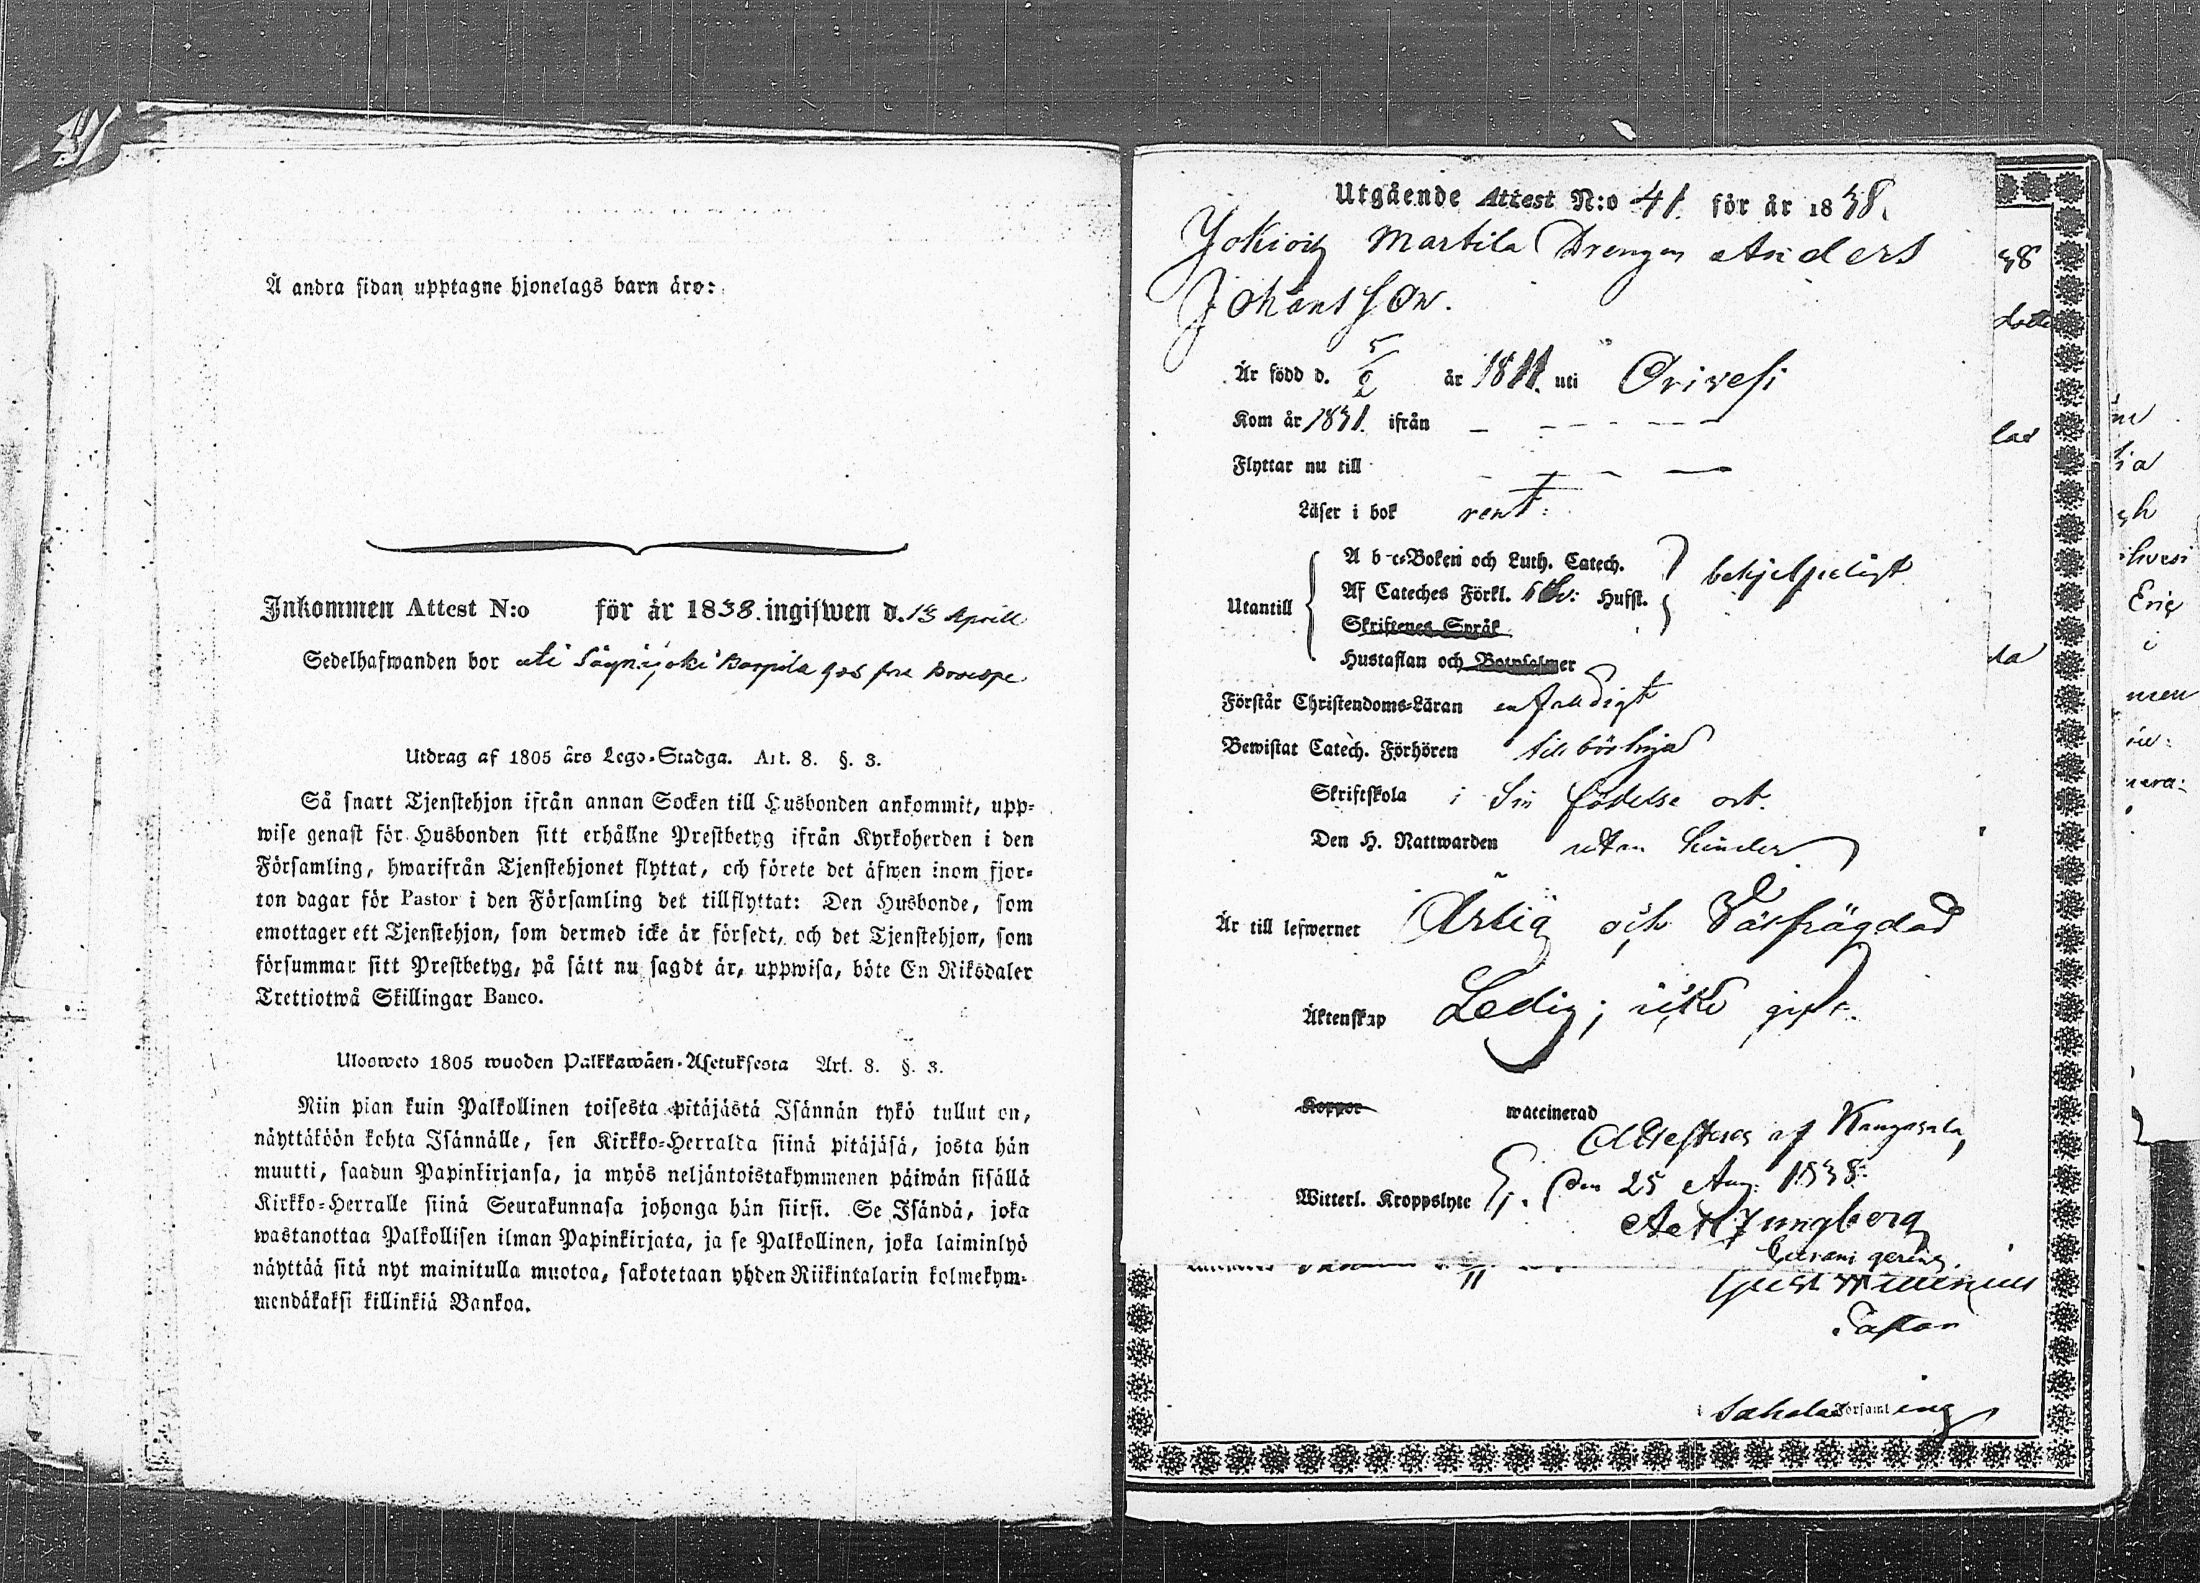 Å andra sidan upptagne hjonelags barn äro:
Inkommen Attest N:o för år 1838. ingifwen d. 13 Aprill
Sedelhafwanden bor uti
Utdrag af 1805 års Lego-Stadga. Art. 8. §. 3.
Så snart Tjenstehjon ifrån annan Socken till Husbonden ankommit, upp-
wise genast för Husbonden sitt erhållne Prestbetyg ifrån Kyrkoherden i den
Församling, hwarifrån Tjenstehjonet flyttat, och förete det äfwen inom fjor-
ton dagar för Pastor i den Församling det tillflyttat: Den Husbonde, som
emottager ett Tjenstehjon, som dermed icke är försedt, och det Tjenstehjon, som
försummar sitt Prestbetyg, på sätt nu sagdt är, uppwisa, böte En Riksdaler
Trettiotwå Skillingar Banco.
Ulosweto 1805 wuoden Palkkawäen-Asetuksesta Art. 8. §. 3.
Niin pian kuin Palkollinen toisesta pitäjästä Isännän tykö tullut on,
näyttäköön kohta Isännälle, sen Kirkko-Herralda siinä pitäjäsä, josta hän
muutti, saadun Papinkirjansa, ja myös neljäntoistakymmenen päiwän sisällä
Kirkko-Herralle siinä Seurakunnasa johonga hän siirsi. Se Isändä, joka
wastanottaa Palkollisen ilman Papinkirjata, ja se Palkollinen, joka laiminlyö
näyttää sitä nyt mainitulla muotoa, sakotetaan yhden Riikintalarin kolmekym-
mendäkaksi killinkiä Bankoa.
Utgående Attest N:o 41. för år 1838.
Jokiois Martila Drengen Anders
Johansson.
Är född d. 5/2 år 1811. uti Orivesi
Kom år 1831. ifrån — — — — —
Flyttar nu till — — — —
Läser i bok rent:
Utantill
A b c-Boken och Luth. Catech.
Af Cateches Förkl. Hufst.
Skriftenes Språk
Hustaflan och Botpsalmer
behjelpeligt
Förstår Christendoms-Läran enfaldigt
Bewistat Catech. Förhören tillbörliga
Skriftskola i sin födelse ort.
Den H. Nattwarden utan hinder
Är till lefwernet Ärlig och Väl frägdad
Äktenskap Ledig; icke gift.
Koppor waccinerad
Attesteras af Kangasala,
Witterl. Kroppslyte Ej. den 25 Aug. 1838.
Ljungberg
Pastor
Församling
38